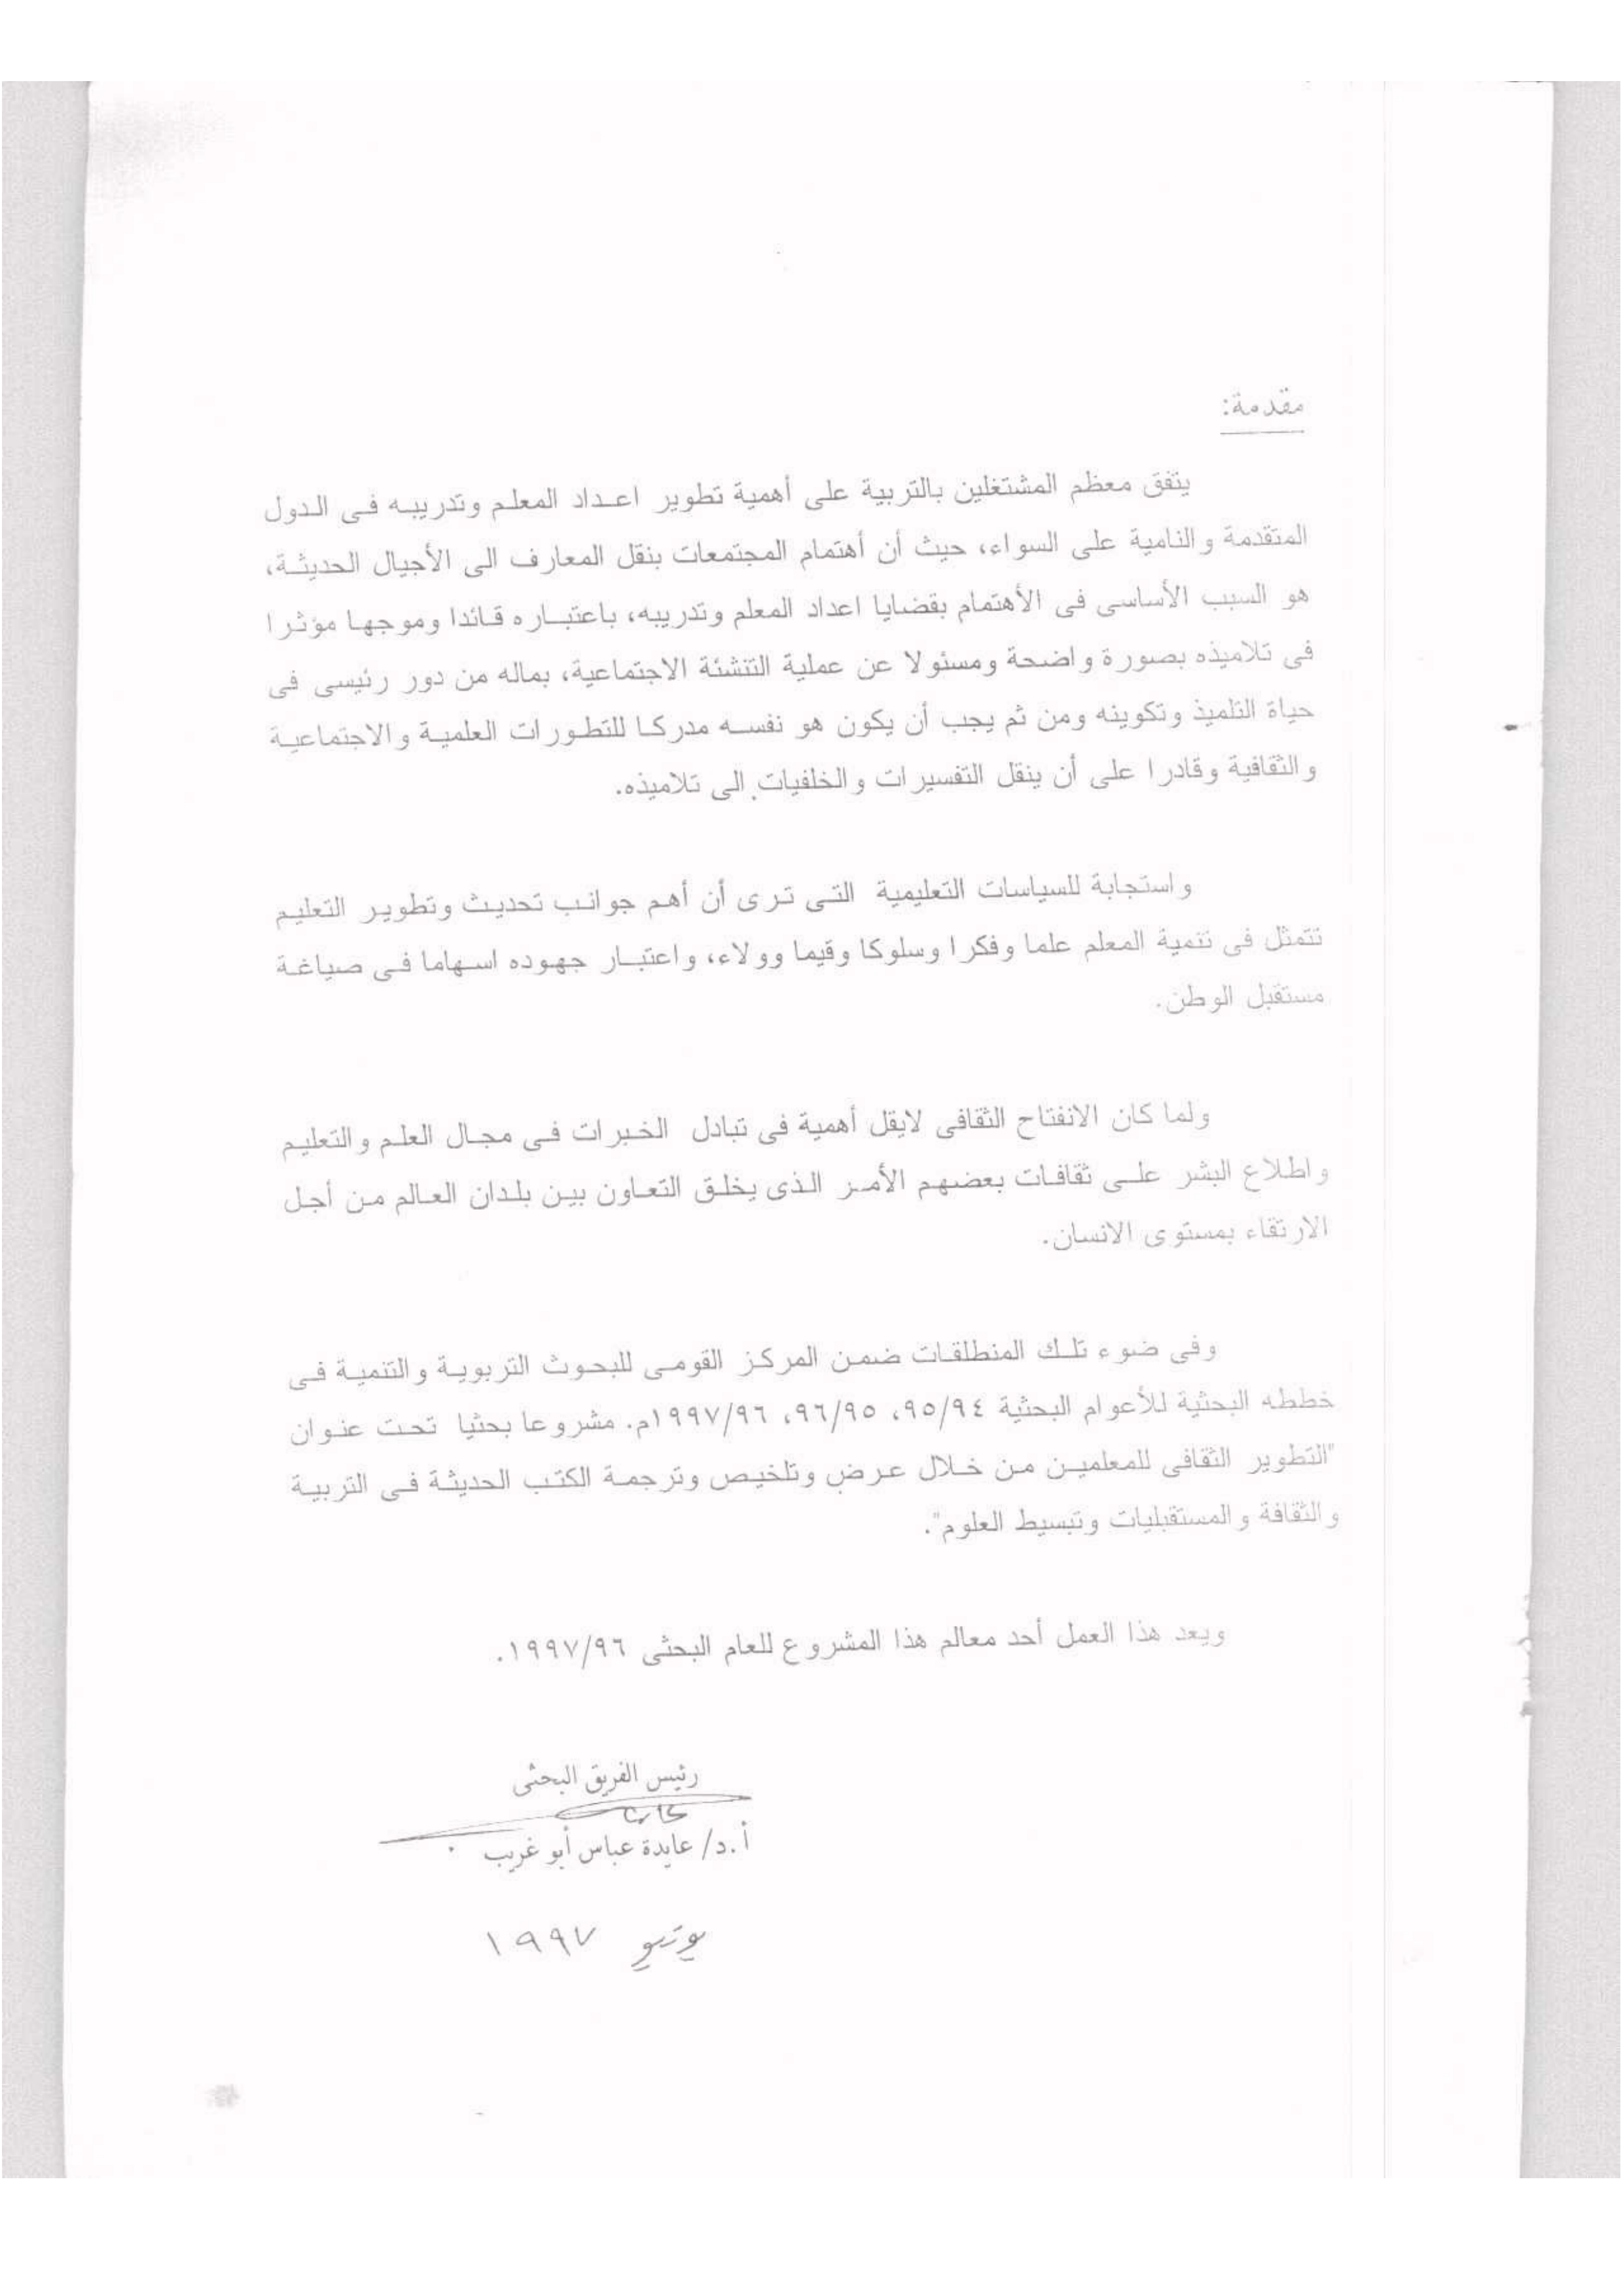 مقدمة:
يتفق معظم المشتغلين بالتربية على أهمية تطوير اعداد المعلم وتدريبه فى الدول
المتقدمة والنامية على السواء، حيث أن أهتمام المجتمعات بنقل المعارف الى الأجيال الحديثة،
هو السبب الأساسى فى الأهتمام بقضايا اعداد المعلم وتدريبه، باعتباره قائدا وموجها مؤثرا
فى تلاميذه بصورة واضحة ومسئولا عن عملية التنشئة الاجتماعية، بماله من دور رئيسى فى
حياة التلميذ وتكوينه ومن ثم يجب أن يكون هو نفسه مدركا للتطورات العلمية والاجتماعية
والثقافية وقادرا على أن ينقل التفسيرات والخلفيات الى تلاميذه.
واستجابة للسياسات التعليمية التى ترى أن أهم جوانب تحديث وتطوير التعليم
تتمثل فى تنمية المعلم علما وفكرا وسلوكا وقيما وولاء، واعتبار جهوده اسهاما فى صياغة
مستقبل الوطن.
ولما كان الانفتاح الثقافى لايقل أهمية فى تبادل الخبرات فى مجال العلم والتعليم
واطلاع البشر على ثقافات بعضهم الأمر الذى يخلق التعاون بين بلدان العالم من أجل
الارتقاء بمستوى الانسان.
وفى ضوء تلك المنطلقات ضمن المركز القومى للبحوث التربوية والتنمية فى
خططه البحثية للأعوام البحثية ٩٥/٩٤، ٩٦/٩٥، ١٩٩٧/٩٦م. مشروعا بحثيا تحت عنوان
"التطوير الثقافى للمعلمين من خلال عرض وتلخيص وترجمة الكتب الحديثة فى التربية
والثقافة والمستقبليات وتبسيط العلوم".
ويعد هذا العمل أحد معالم هذا المشروع للعام البحثى ١٩٩٧/٩٦.
رئيس الفريق البحثى
أ.د/ عايدة عباس أبو غريب
يونيو ١٩٩٧